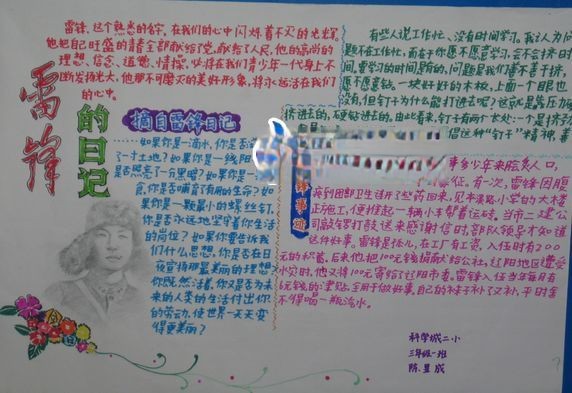 雷锋，这个熟悉的名字，在我们的心中闪烁着不灭的光辉，
他把自己旺盛的青春全部献给了党，献给了人民，他的高尚的
理想、信念、道德、情操，必将在我们青少年一代身上不
断发扬光大，他那不可磨灭的美好形象，将永远活在我们
的心中。
雷锋
的日记
摘自雷锋日记
……如果你是一滴水，你是否滋
了一寸土地？如果你是一线阳
是否照亮了一分黑暗？如果你是一
食，你是否哺育了有用的生命？如
果你是一颗最小的螺丝钉，
你是否永远地坚守着你生活
的岗位？如果你要告诉我
们什么思想，你是否在日
夜宣扬那最美丽的理想？
你既然活着，你又是否为未
来的人类的生活付出你
的劳动，使世界一天天变
得更美丽？
有些人说工作忙、没有时间学习。我认为问
题不在工作忙，而在于你愿不愿意学习，会不会挤时
间。要学习的时间是有的，问题是我们善不善于挤，
愿不愿意钻。一块好好的木板，上面一个眼也
没有，但钉子为什么能钉进去呢？这就是靠压力硬
挤进去的，硬钻进去的。由此看来，钉子有两个长处：一个是挤劲
倡这种“钉子”精神，善
锋事迹
事多少年来脍炙人口，
象征。有一次，雷锋因腹
来到团部卫生连开了些药回来，见本溪路小学的大楼
正施工，便推起一辆小车帮着运砖。当市二建公
司敲锣打鼓送来感谢信时，部队领导才知道
这件好事。雷锋是孤儿，在工厂有工资，入伍时有200
元的积蓄。后来他把100元捐献给公社，辽阳地区遭受
水灾时，他又将100元寄给了辽阳市委。雷锋入伍当年每月有
6元钱的津贴，全用于做好事。自己的袜子补了又补，平时舍
不得喝一瓶汽水。
科学城二小
三年级一班
陈昱成